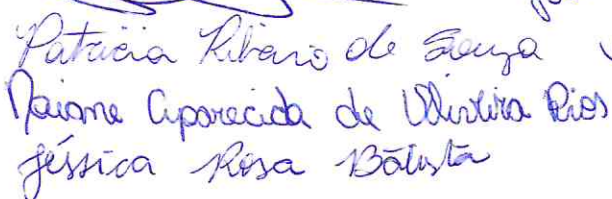 Patricia Ribeiro de Souza
Naiane Aparecida de Oliveira Rios
Jéssica Rosa Batista